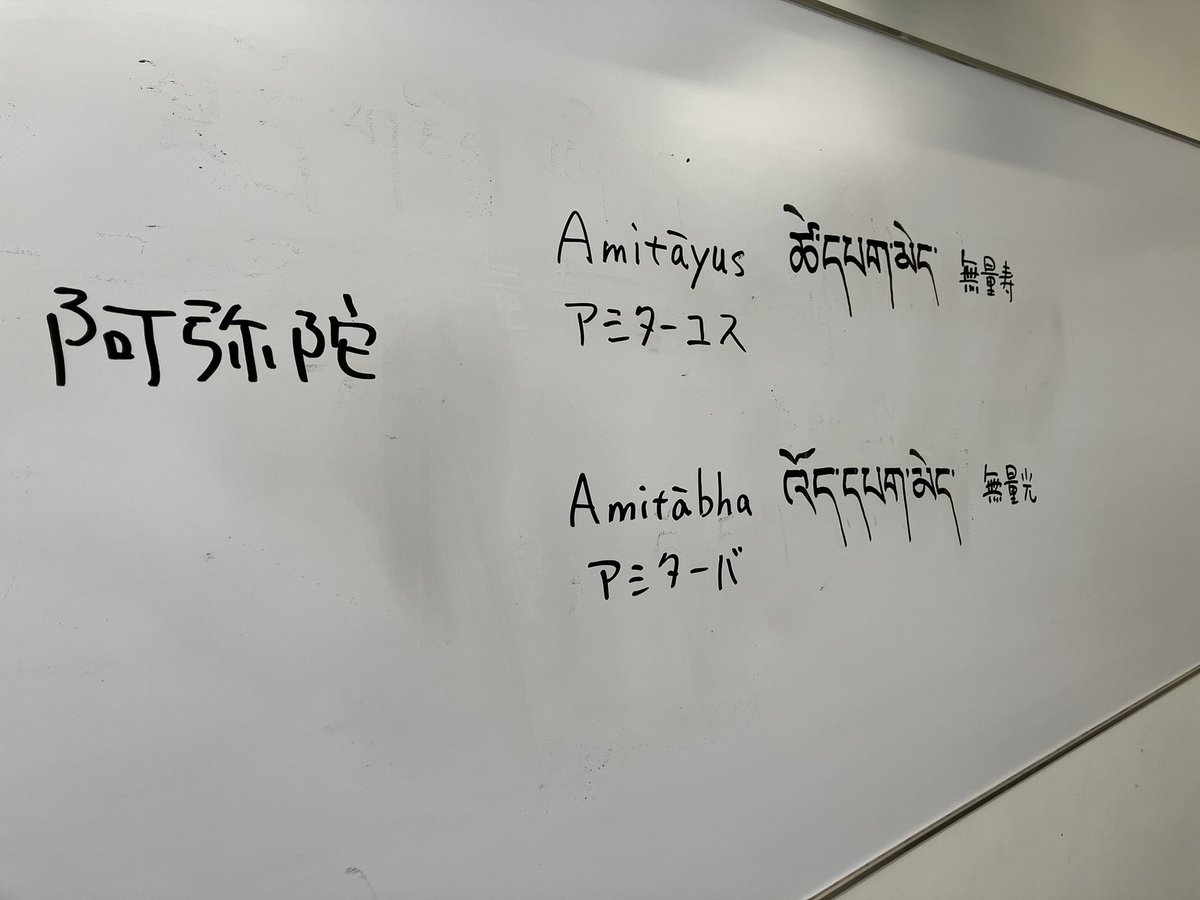 阿弥陀
Amitāyus ཚེ་དཔག་མེད་ 無量寿
アミターユス
Amitābha འོད་དཔག་མེད་ 無量光
アミターバ